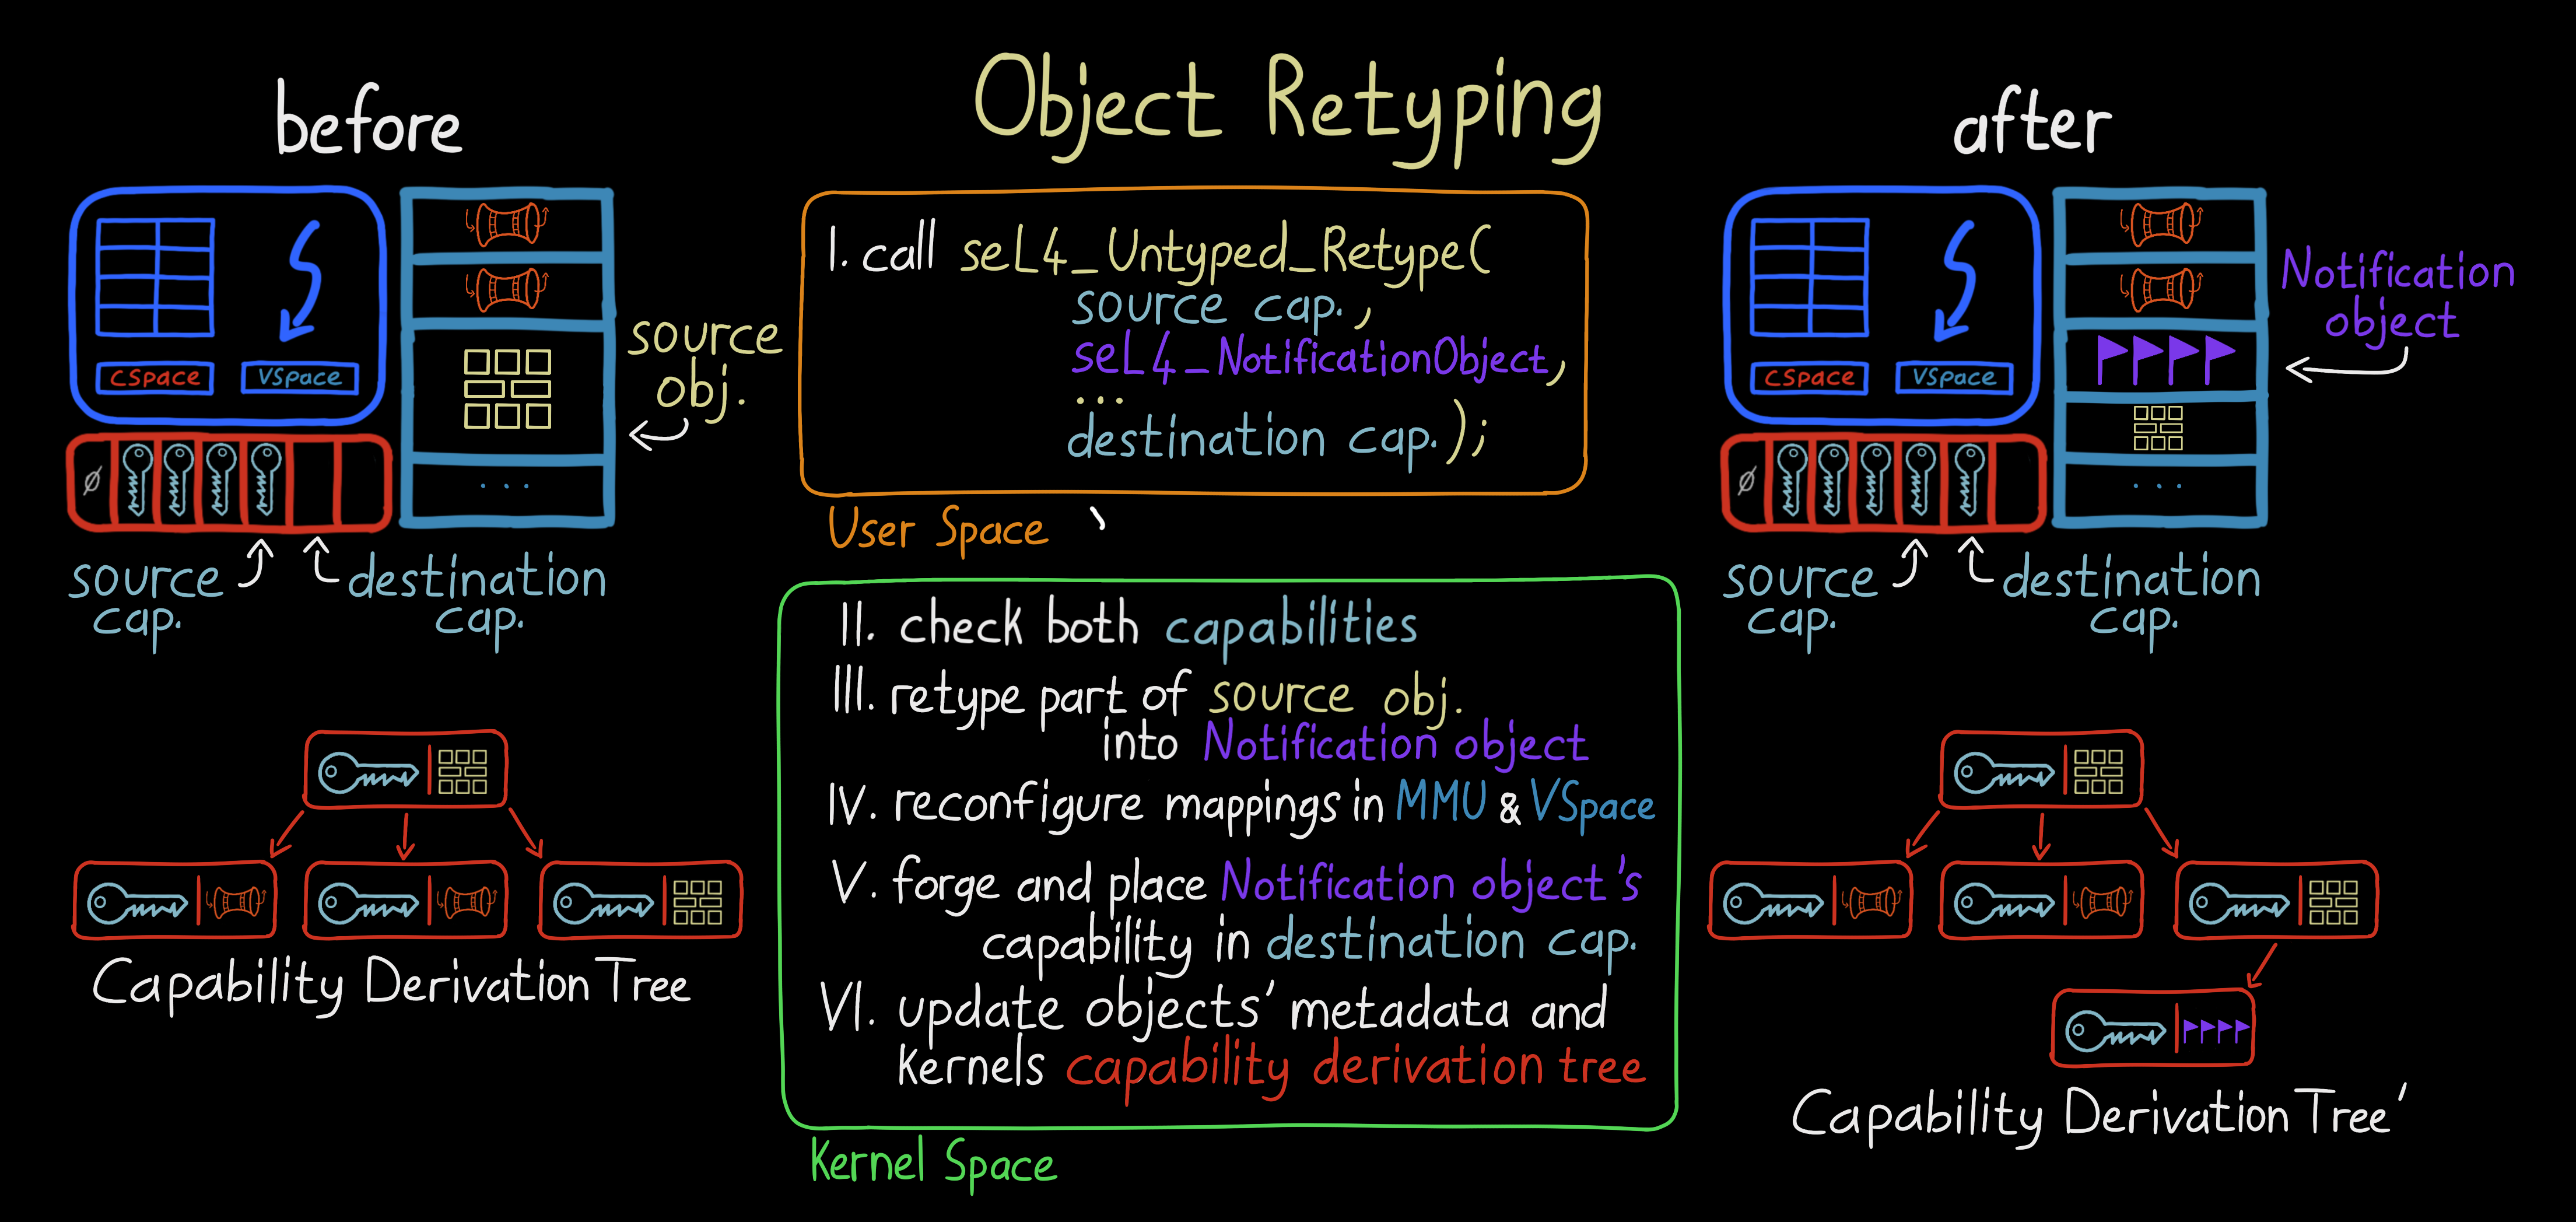 Object Retyping
before
CSpace
VSpace
...
source
obj.
Ø
source
cap.
destination
cap.
Capability Derivation Tree
I. call seL4_Untyped_Retype(
source cap.,
seL4_NotificationObject,
...
destination cap.);
User Space
II. check both capabilities
III. retype part of source obj.
into Notification object
IV. reconfigure mappings in MMU & VSpace
V. forge and place Notification object's
capability in destination cap.
VI. update objects' metadata and
kernels capability derivation tree
Kernel Space
after
CSpace
VSpace
...
Notification
object
Ø
source
cap.
destination
cap.
Capability Derivation Tree'